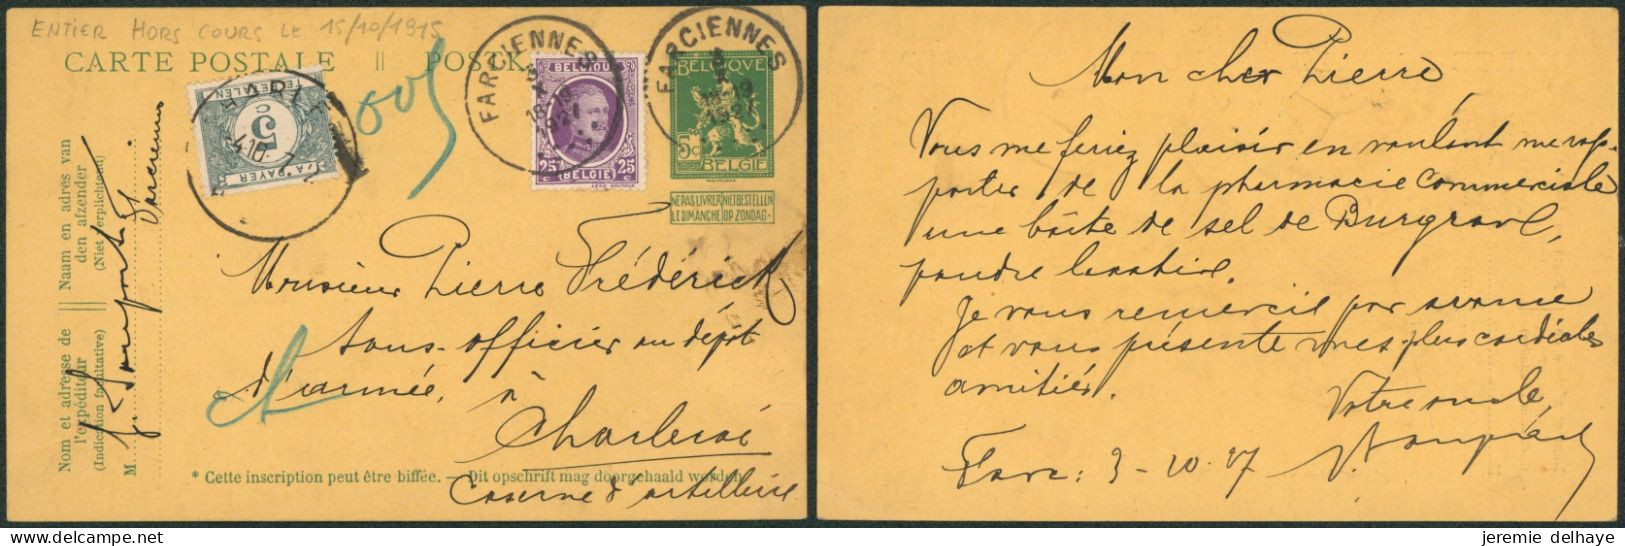 ENTIER HORS COURS LE 15/10/1915
CARTE POSTALE || POSTK
FARCIENNES
18-19
1927
FARCIENNES
18-19
1927
BELGIQUE
25c 25c
BELGIE
BELGIQUE
5c
BELGIE
TE BETALEN
5
c
A PAYER
005
NE PAS LIVRER LE DIMANCHE
NIET BESTELLEN OP ZONDAG.
Naam en adres van
den afzender
(Niet verplichtend)
Nom et adresse de
l'expéditeur
(Indication facultative)
M
Farciennes
Monsieur Pierre Frédérick
Sous-officier au dépôt
d'armée, à
Charleroi
* Cette inscription peut être biffée. — Dit opschrift mag doorgehaald worden.
Caserne d'artillerie
Mon cher Pierre
Vous me feriez plaisir en voulant me rap-
porter de la pharmacie Commerciale
une boîte de sel de Burgrave,
poudre laxative.
Je vous remercie par avance
et vous présente mes plus cordiales
amitiés.
Votre oncle,
Farc: 3-10-27
jeremie delhaye